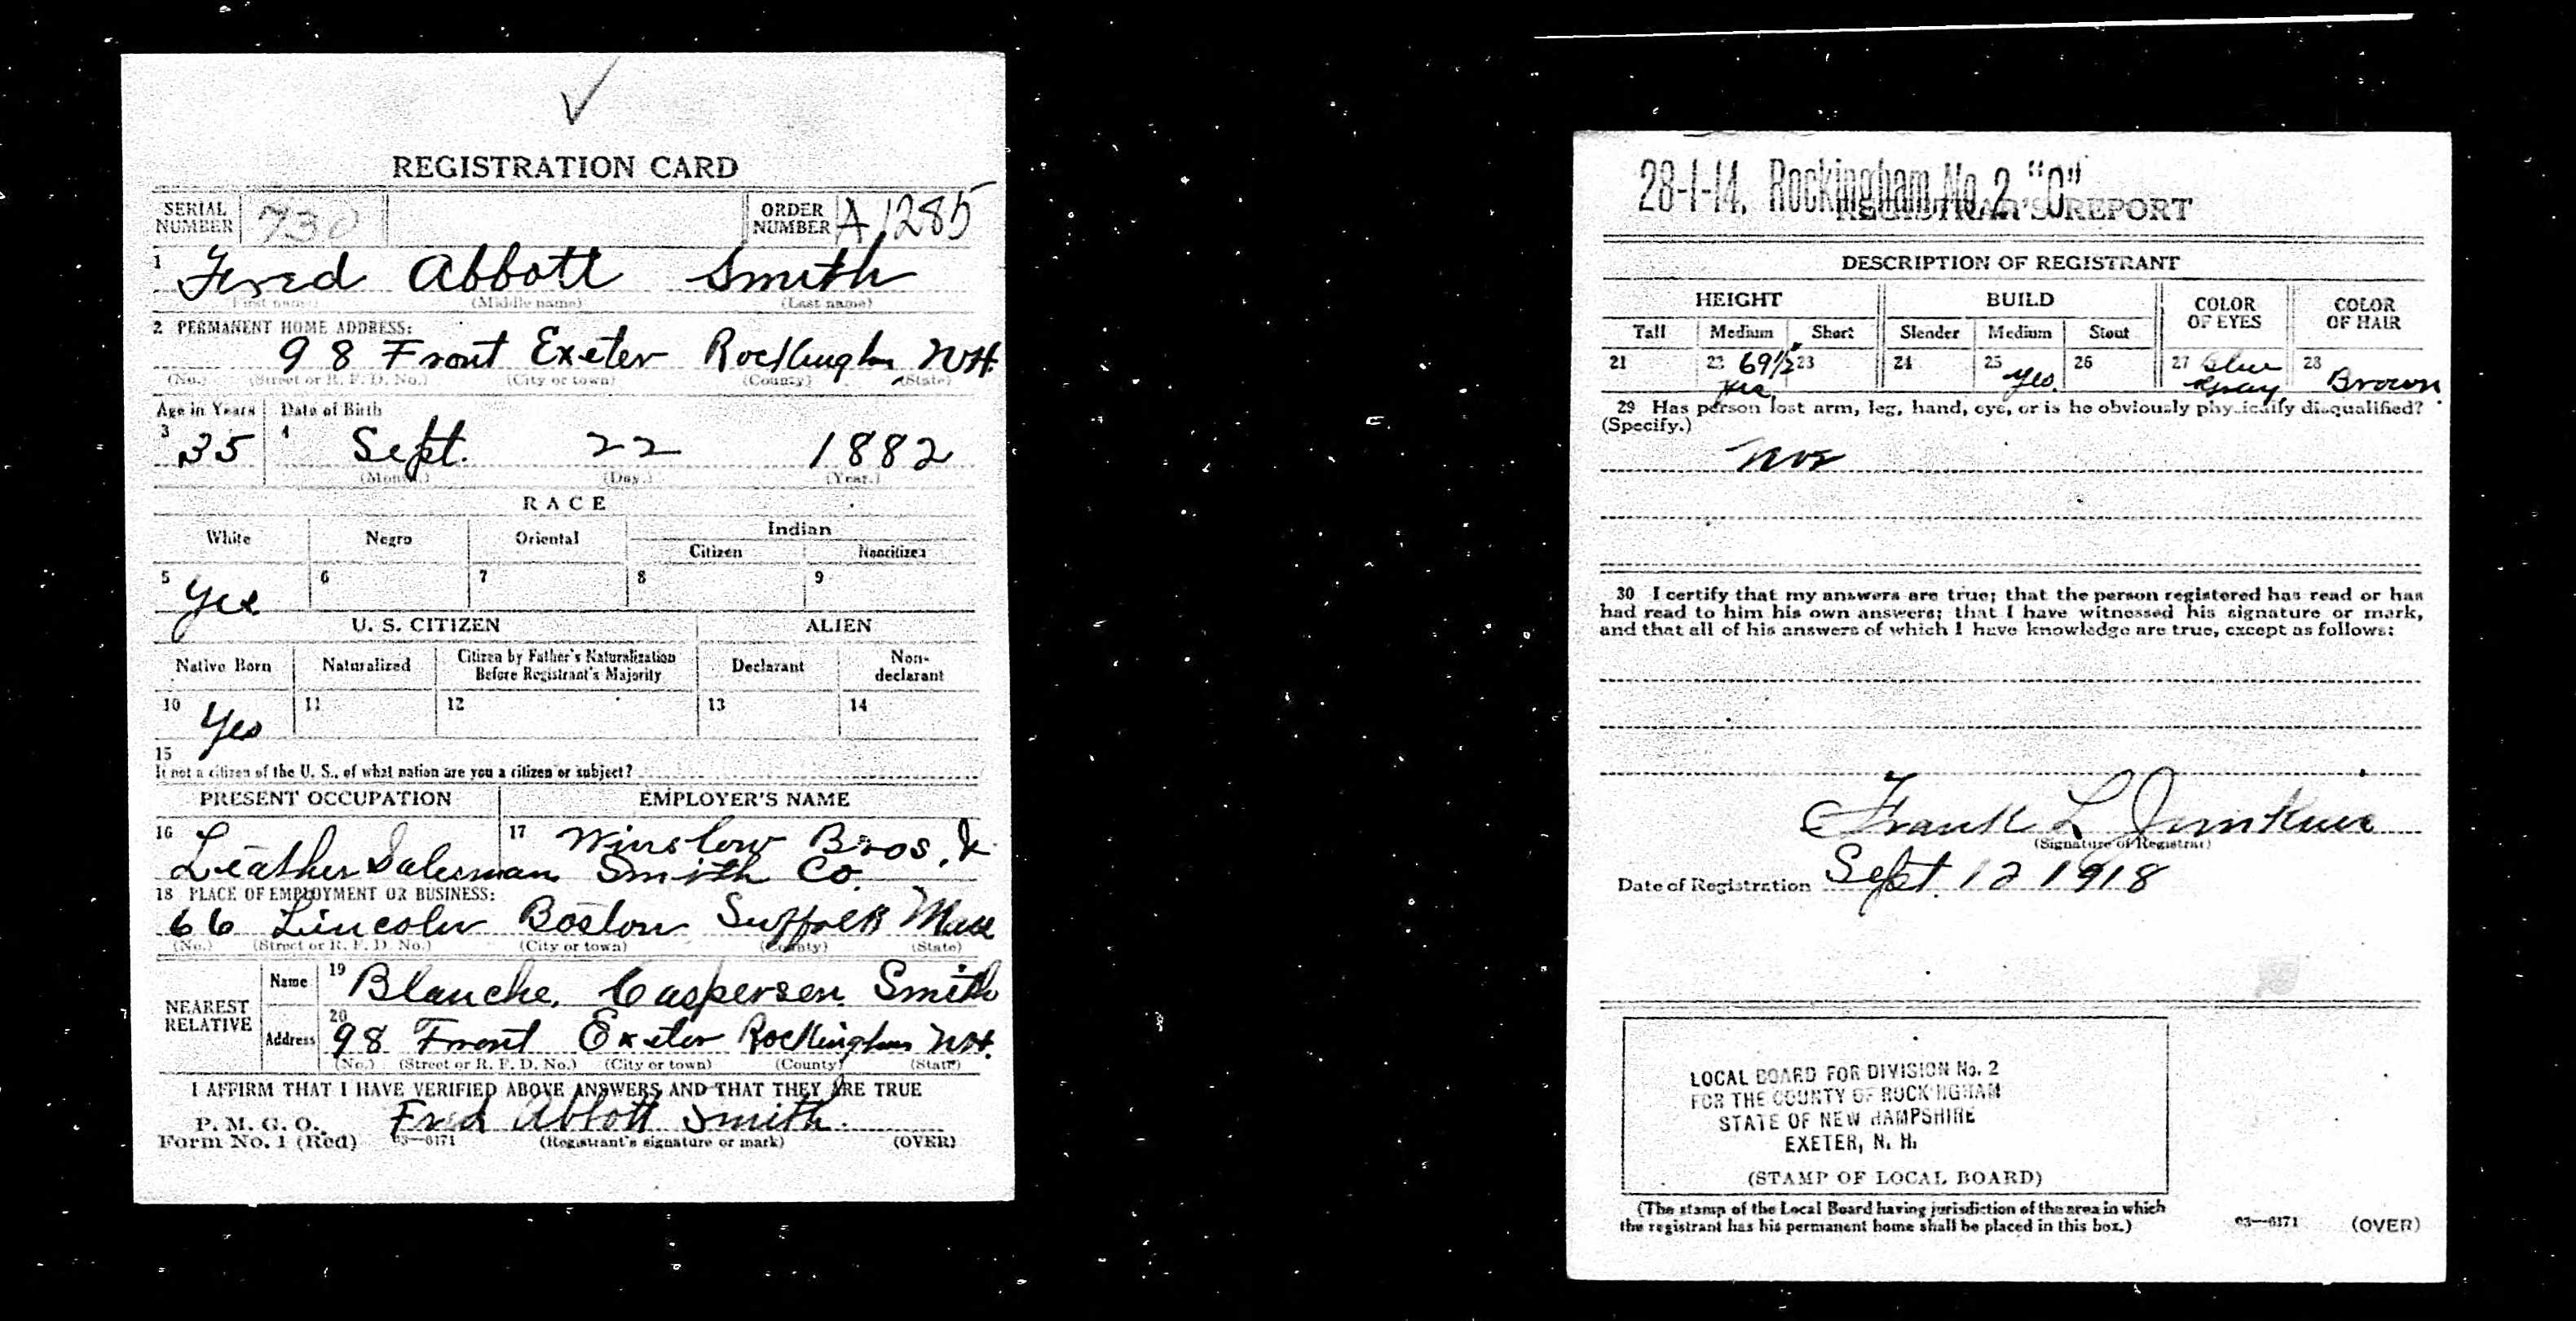 REGISTRATION CARD
SERIAL NUMBER 730 ORDER NUMBER A 1285
1 Fred Abbott Smith
(First name) (Middle name) (Last name)
2 PERMANENT HOME ADDRESS:
98 Front Exeter Rockingham NH.
(No.) (Street or R. F. D. No.) (City or town) (County) (State)
Age in Years Date of Birth
3 35 4 Sept. 22 1882
(Month.) (Day.) (Year.)
RACE
White Negro Oriental Indian
Citizen Noncitizen
5 Yes 6 7 8 9
U. S. CITIZEN ALIEN
Native Born Naturalized Citizen by Father's Naturalization Before Registrant's Majority Declarant Non-declarant
10 Yes 11 12 13 14
15
If not a citizen of the U. S., of what nation are you a citizen or subject?
PRESENT OCCUPATION EMPLOYER'S NAME
16 Leather Salesman 17 Winslow Bros. &
Smith Co.
18 PLACE OF EMPLOYMENT OR BUSINESS:
66 Lincoln Boston Suffolk Mass
(No.) (Street or R. F. D. No.) (City or town) (County) (State)
NEAREST RELATIVE
Name 19 Blanche Caspersen Smith
Address 20 98 Front Exeter Rockingham NH.
(No.) (Street or R. F. D. No.) (City or town) (County) (State)
I AFFIRM THAT I HAVE VERIFIED ABOVE ANSWERS AND THAT THEY ARE TRUE
P. M. G. O. Fred Abbott Smith
Form No. 1 (Red) 03—6171 (Registrant's signature or mark) (OVER)
28-1-14. Rockingham No. 2 "C"
REGISTRAR'S REPORT
DESCRIPTION OF REGISTRANT
HEIGHT BUILD COLOR OF EYES COLOR OF HAIR
Tall Medium Short Slender Medium Stout
21 22 69½ yes 23 24 25 Yes 26 27 Blue Gray 28 Brown
29 Has person lost arm, leg, hand, eye, or is he obviously physically disqualified?
(Specify.)
30 I certify that my answers are true; that the person registered has read or has
had read to him his own answers; that I have witnessed his signature or mark,
and that all of his answers of which I have knowledge are true, except as follows:
Frank L Junkins
(Signature of Registrar)
Date of Registration Sept. 12 1918
LOCAL BOARD FOR DIVISION No. 2
FOR THE COUNTY OF ROCKINGHAM
STATE OF NEW HAMPSHIRE
EXETER, N. H.
(STAMP OF LOCAL BOARD)
(The stamp of the Local Board having jurisdiction of the area in which
the registrant has his permanent home shall be placed in this box.)
03—6171 (OVER)